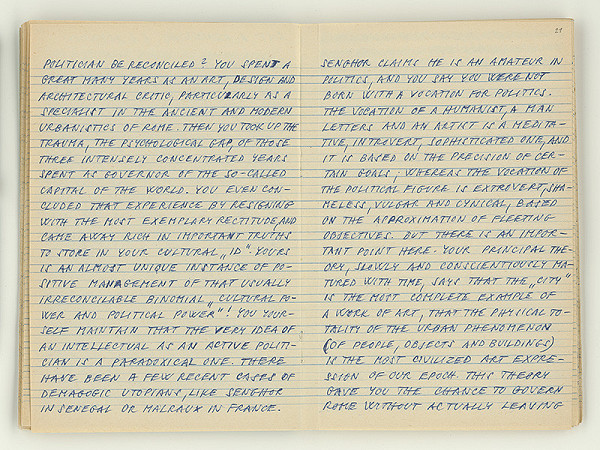 POLITICIAN BE RECONCILED? YOU SPENT A
GREAT MANY YEARS AS AN ART, DESIGN AND
ARCHITECTURAL CRITIC, PARTICULARLY AS A
SPECIALIST IN THE ANCIENT AND MODERN
URBANISTICS OF ROME. THEN YOU TOOK UP THE
TRAUMA, THE PSYCHOLOGICAL GAP, OF THOSE
THREE INTENSELY CONCENTRATED YEARS
SPENT AS GOVERNOR OF THE SO-CALLED
CAPITAL OF THE WORLD. YOU EVEN CON-
CLUDED THAT EXPERIENCE BY RESIGNING
WITH THE MOST EXEMPLARY RECTITUDE, AND
CAME AWAY RICH IN IMPORTANT TRUTHS
TO STORE IN YOUR CULTURAL „ID". YOURS
IS AN ALMOST UNIQUE INSTANCE OF PO-
SITIVE MANAGEMENT OF THAT USUALLY
IRRECONCILABLE BINOMIAL „CULTURAL PO-
WER AND POLITICAL POWER"! YOU YOUR-
SELF MAINTAIN THAT THE VERY IDEA OF
AN INTELLECTUAL AS AN ACTIVE POLITI-
CIAN IS A PARADOXICAL ONE. THERE
HAVE BEEN A FEW RECENT CASES OF
DEMAGOGIC UTOPIANS, LIKE SENGHOR
IN SENEGAL OR MALRAUX IN FRANCE.
SENGHOR CLAIMS HE IS AN AMATEUR IN
POLITICS, AND YOU SAY YOU WERE NOT
BORN WITH A VOCATION FOR POLITICS.
THE VOCATION OF A HUMANIST, A MAN
LETTERS AND AN ARTIST IS A MEDITA-
TIVE, INTROVERT, SOPHISTICATED ONE, AND
IT IS BASED ON THE PRECISION OF CER-
TAIN GOALS; WHEREAS THE VOCATION OF
THE POLITICAL FIGURE IS EXTROVERT, SHA-
MELESS, VULGAR AND CYNICAL, BASED
ON THE APPROXIMATION OF FLEETING
OBJECTIVES. BUT THERE IS AN IMPOR-
TANT POINT HERE. YOUR PRINCIPAL THE-
ORY, SLOWLY AND CONSCIENTIOUSLY MA-
TURED WITH TIME, SAYS THAT THE „CITY"
IS THE MOST COMPLETE EXAMPLE OF
A WORK OF ART, THAT THE PHYSICAL TO-
TALITY OF THE URBAN PHENOMENON
(OF PEOPLE, OBJECTS AND BUILDINGS)
IS THE MOST CIVILIZED ART EXPRE-
SSION OF OUR EPOCH. THIS THEORY
GAVE YOU THE CHANCE TO GOVERN
ROME WITHOUT ACTUALLY LEAVING